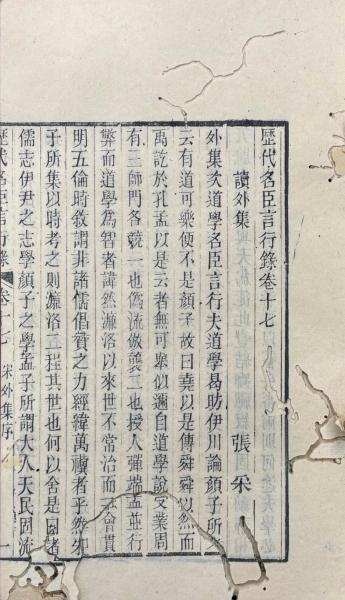 歷代名臣言行錄卷十七
讀外集　張采
外集次道學名臣言行夫道學曷助伊川論顏子所
云有道可樂便不是顏子故曰堯以是傳舜舜以然而
禹訖於孔孟以是云者無可舉似適自道學說
有三師門各競一也偽流倣襲二也授人彈端孟並行
弊而道學為智者諱然濂洛以來世不常治而
明五倫時敘謂非諸儒倡質之力經緯萬禩者乎然朱
子所集以時考之則濂洛二程其世也何以舍是
儒志伊尹之志學顏子之學孟子所謂大人天民固
歷代名臣言行錄　卷十七　宋外集序　一